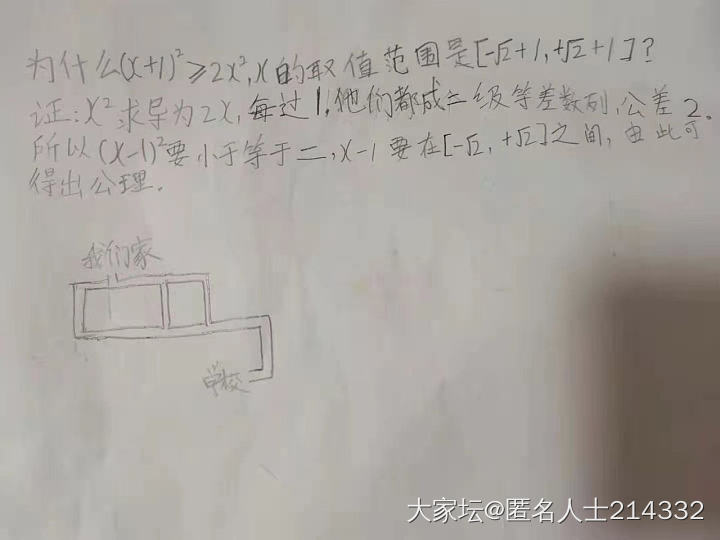 为什么(x+1)²≥2x²,x的取值范围是[-√2+1,+√2+1]?
证:x²求导为2x,每过1,他们都成二级等差数列,公差2。
所以(x-1)²要小于等于二,x-1要在[-√2,+√2]之间,由此可
得出公理.
我们家
学校
大家坛@匿名人士214332